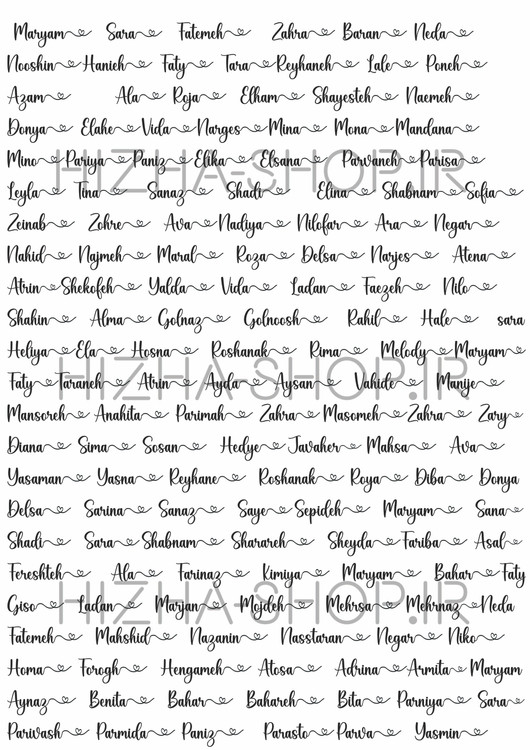 Maryam Sara Fatemeh Zahra Baran Neda
Nooshin Hanieh Faty Tara Reyhaneh Lale Poneh
Azam Ala Roja Elham Shayesteh Naemeh
Donya Elahe Vida Narges Mina Mona Mandana
Mino Pariya Paniz Elika Elsana Parvaneh Parisa
HIZHA-SHOP.IR
Leyla Tina Sanaz Shadi Elina Shabnam Sofia
Zeinab Zohre Ava Nadiya Nilofar Ara Negar
Nahid Najmeh Maral Roza Delsa Narjes Atena
Atrin Shekofeh Yalda Vida Ladan Faezeh Nilo
Shahin Alma Golnaz Golnoosh Rahil Hale sara
Heliya Ela Hosna Roshanak Rima Melody Maryam
HIZHA-SHOP.IR
Faty Taraneh Atrin Ayda Aysan Vahide Manije
Mansoreh Anahita Parimah Zahra Masomeh Zahra Zary
Diana Sima Sosan Hedye Javaher Mahsa Ava
Yasaman Yasna Reyhane Roshanak Roya Diba Donya
Delsa Sarina Sanaz Saye Sepideh Maryam Sana
Shadi Sara Shabnam Sharareh Sheyda Fariba Asal
Fereshteh Ala Farinaz Kimiya Maryam Bahar Faty
HIZHA-SHOP.IR
Giso Ladan Marjan Mojdeh Mehrsa Mehrnaz Neda
Fatemeh Mahshid Nazanin Nasstaran Negar Niko
Homa Forogh Hengameh Atosa Adrina Armita Maryam
Aynaz Benita Bahar Bahareh Bita Parniya Sara
Parivash Parmida Paniz Parasto Parva Yasmin